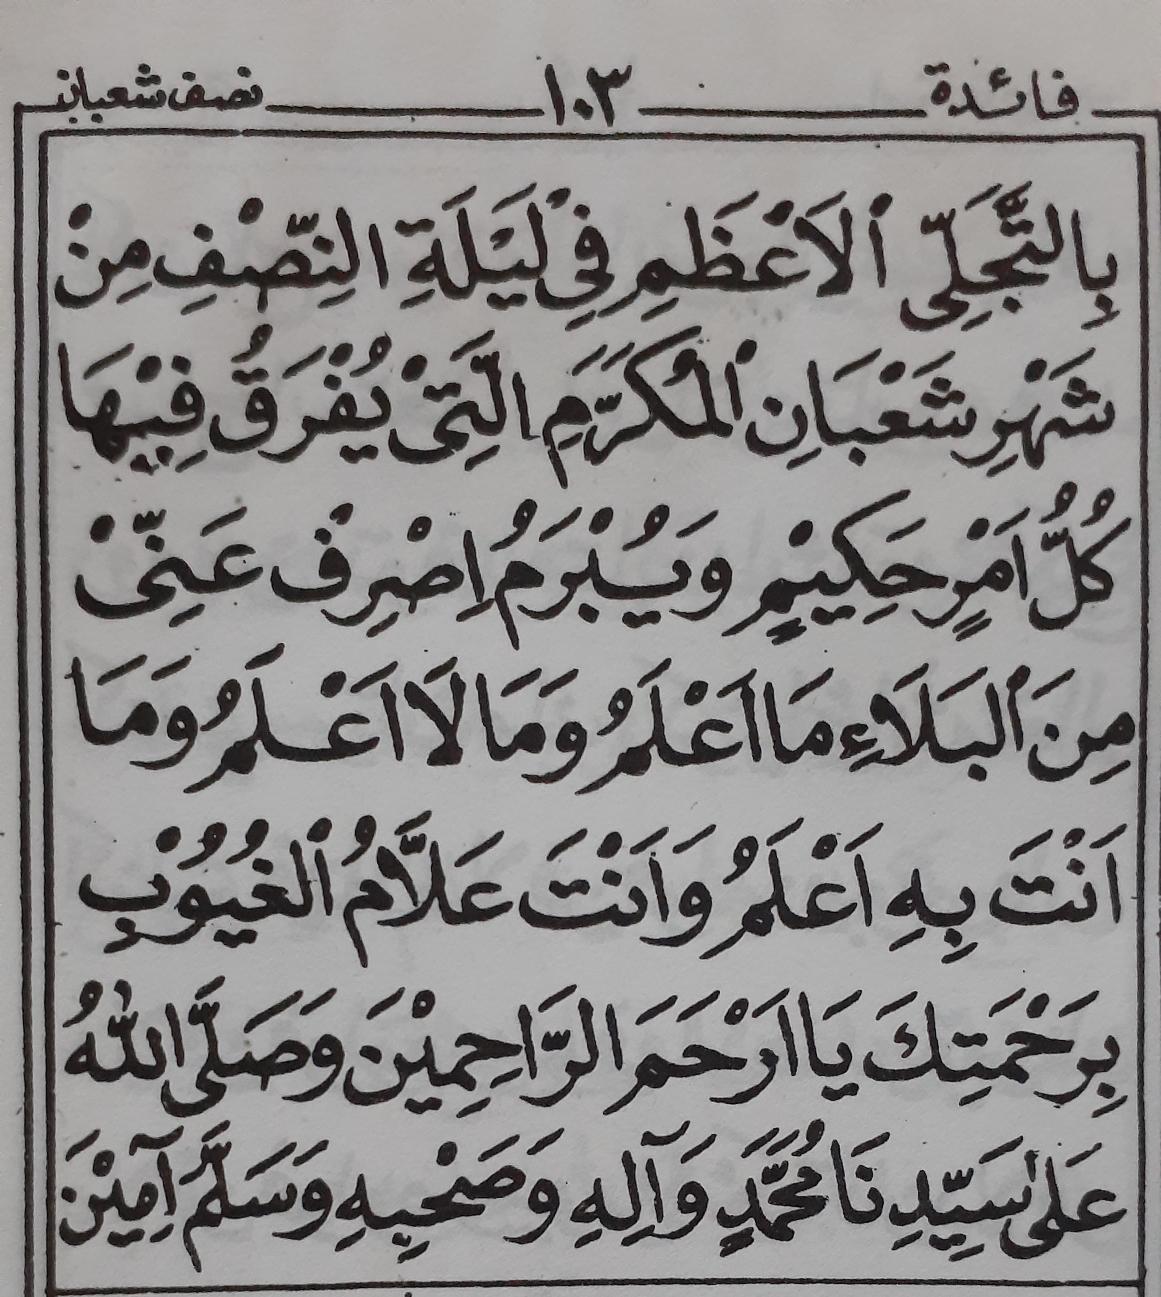 فائدة ١٠٣ نصف شعبان
بِالتَّجَلِّى الْاَعْظَمِ فِيْ لَيْلَةِ النِّصْفِ مِنْ
شَهْرِ شَعْبَانِ الْمُكَرَّمِ الَّتِىْ يُفْرَقُ فِيْهَا
كُلُّ اَمْرٍ حَكِيْمٍ وَيُبْرَمُ اِصْرِفْ عَنِّىْ
مِنَ الْبَلَاءِ مَا اَعْلَمُ وَمَا لَا اَعْلَمُ وَمَا
اَنْتَ بِهِ اَعْلَمُ وَاَنْتَ عَلَّامُ الْغُيُوْبِ
بِرَحْمَتِكَ يَا اَرْحَمَ الرَّاحِمِيْنَ وَصَلَّى اللّٰهُ
عَلىٰ سَيِّدِنَا مُحَمَّدٍ وَآلِهِ وَصَحْبِهِ وَسَلَّمَ آمِيْنَ